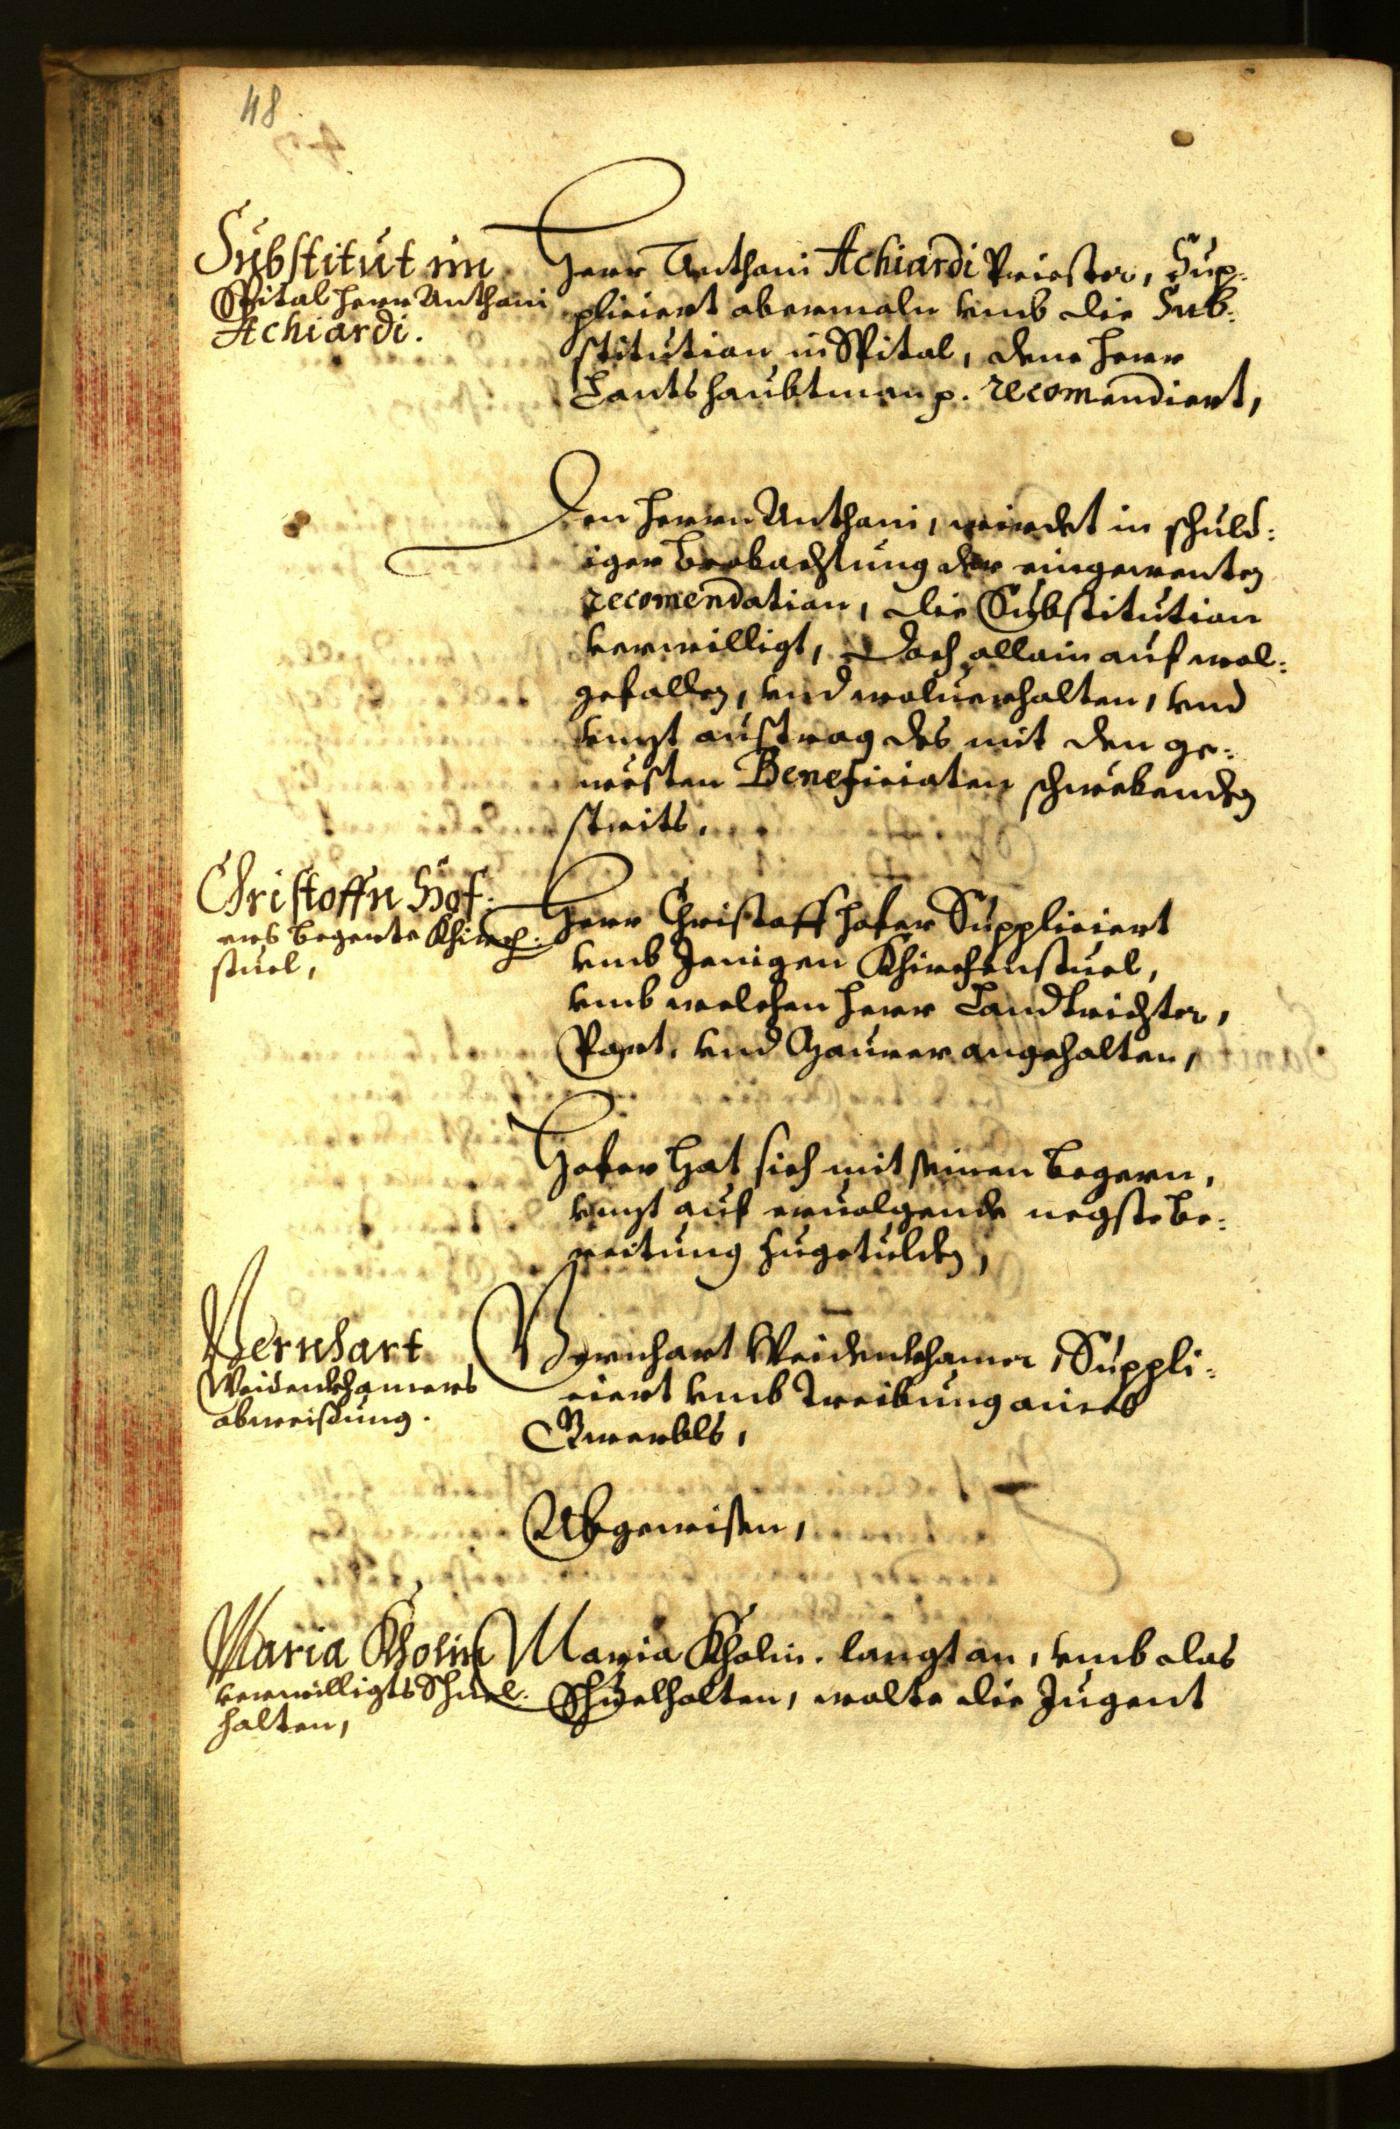 48
Substitut im
Spital Herr Anthoni
Achiardi.
Herr Anthoni Achiardi Priester, Sup-
pliciert abermaln vmb die Sub-
stitution in Spital, dene Herr
Landtshaubtman p. recomendiert,
Den Herrn Anthoni, wierdet in schuld-
iger beobachtung der eingewenten
recomendation, die Substitution
verwilligt, doch allain auf wol-
gefallen, vnd woluerhalten, vnd
vnzt austrag des mit den ge-
westen Beneficiaten schwebenden
streits.
Christoffn Hof-
ers begerte Khirch-
stuel,
Herr Christoff Hofer Suppliciert
vmb Jenigen Khirchenstuel,
vmb welchen Herr Landtrichter,
Part. vnd angehalten,
Hofer hat sich mit seinen begern,
vnzt auf eruolgende negste be-
reitung zugetulden,
Bernhart
Weidenkhamers
abweisung.
Bernhart Weidenkhamer, Suppli-
ciert vmb Treibung aines
Gwerbls,
Abgewisen,
Maria Kholin
verwilligts Schuel-
halten,
Maria Kholin. langt an, vmb das
Schuelhalten, wolte die Jugent